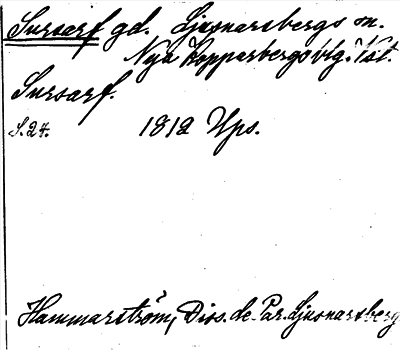 Sursarf gd. Ljusnarsbergs sn.
Nya Kopparbergs blg. Vst.
Sursarf.
S. 24. 1812 Ups.
Hammarström, Diss. de Par. Ljusnarsberg